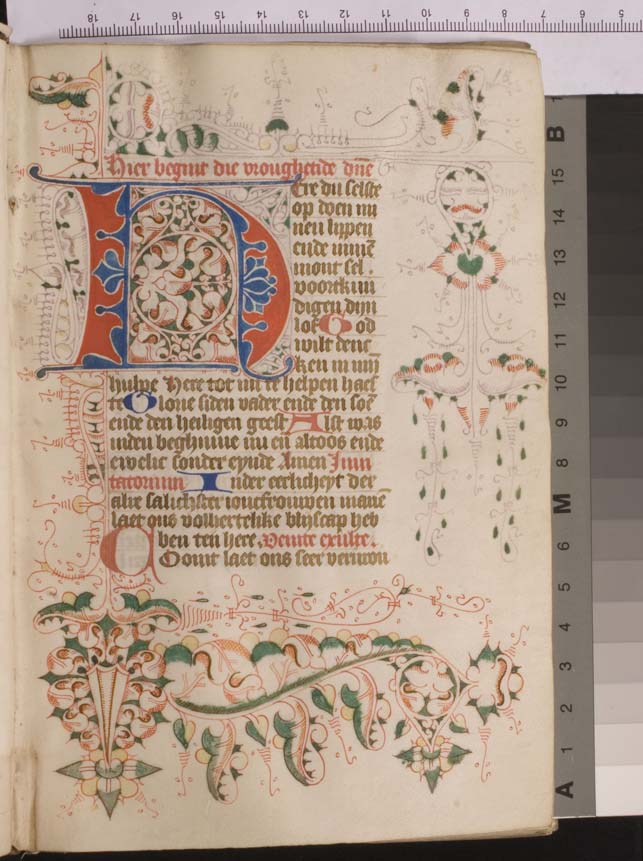 Hier begint die vroughetide onse
Here du selste
op doen mi
nen lippen
ende minē
mont sel .
voortkun
digen dijn
lof God
wilt denc
ken in mijn
hulpe Here tot mi te helpen haes
te Glorie siden vader ende den soē
ende den heiligen geest Alst was
inden beghinne nu en altoos ende
ewelic sonder eynde Amen Inui
tatorium Inder eerlicheyt der
alre salichster ioncfrouwen mariē
laet ons volhertelike blijscap heb
ben ten here . Venite exulte .
Comt laet ons seer verurou